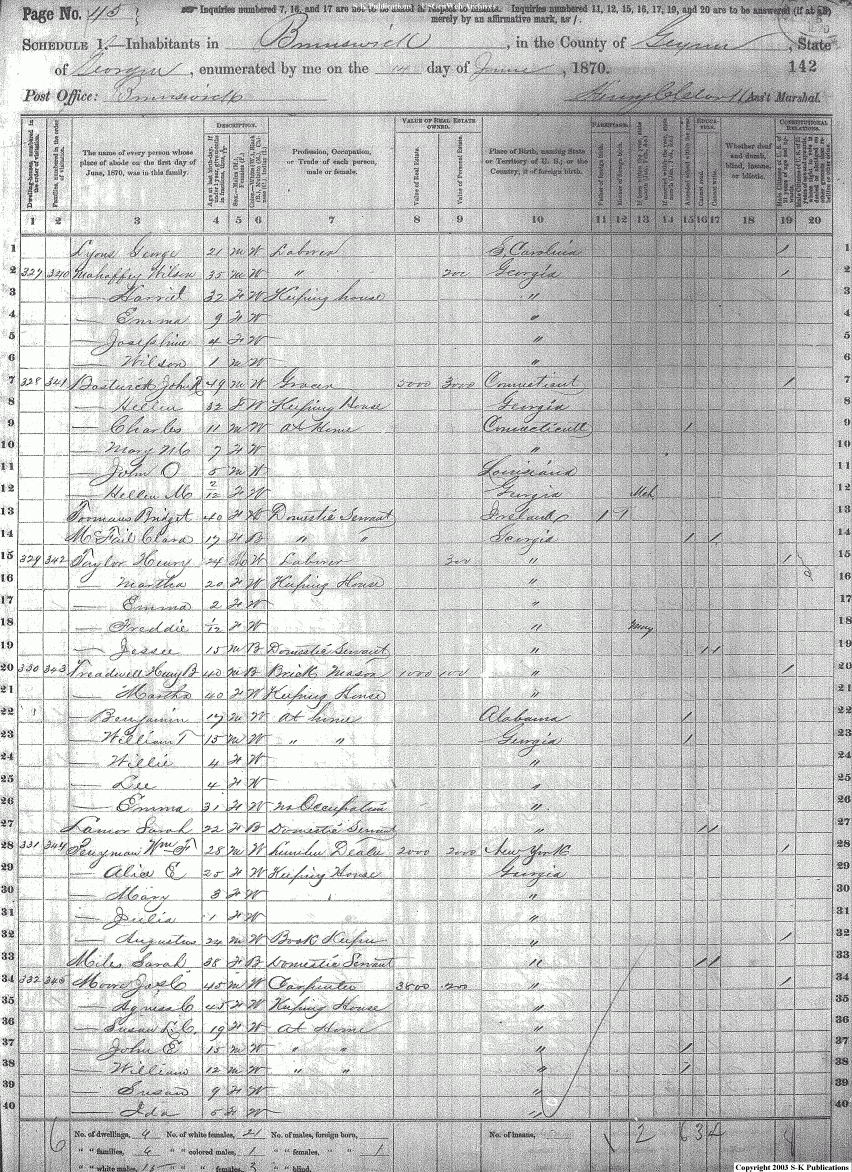 Page No. 45
Inquiries numbered 7, 16, and 17 are not to be asked in respect to infants. Inquiries numbered 11, 12, 15, 16, 17, 19, and 20 are to be answered (if at all) merely by an affirmative mark, as /.
SCHEDULE 1.—Inhabitants in Brunswick, in the County of Glynn, State
of Georgia, enumerated by me on the day of June, 1870. 142
Post Office: Brunswick Ass't Marshal.
DESCRIPTION. VALUE OF REAL ESTATE OWNED. PARENTAGE. CONSTITUTIONAL RELATIONS.
The name of every person whose place of abode on the first day of June, 1870, was in this family.
Profession, Occupation, or Trade of each person, male or female.
Value of Real Estate.
Value of Personal Estate.
Place of Birth, naming State or Territory of U. S.; or the Country, if of foreign birth.
Whether deaf and dumb, blind, insane, or idiotic.
1 2 3 4 5 6 7 8 9 10 11 12 13 14 15 16 17 18 19 20
1 Lyons George 21 M W Laborer S. Carolina / 1
2 327 340 Mahaffey Wilson 35 M W " 200 Georgia / 2
3 — Harriet 32 F W Keeping house " 3
4 — Emma 9 F W " 4
5 — Josephine 4 F W " 5
6 — Wilson 1 M W " 6
7 328 341 Bostwick John R 49 M W Grocer 5000 3000 Connecticut / 7
8 — Hellen 32 F W Keeping House Georgia 8
9 — Charles 11 M W At Home Connecticutt / 9
10 — Mary 7 F W " 10
11 — John O 5 M W Louisiana 11
12 — Hellen M 2/12 F W Georgia Mch 12
13 Bridget 40 F W Domestic Servant Ireland / / 13
14 McFail Clara 17 F B " " Georgia / / 14
15 329 342 Taylor Henry 24 M W Laborer 300 " / 15
16 — Martha 20 F W Keeping House " 16
17 — Emma 2 F W " 17
18 — Freddie 1/12 F W " May 18
19 — Jessee 15 M B Domestic Servant " / / 19
20 330 343 Treadwell Henry B 40 M B Brick Mason 1000 100 " / 20
21 — Martha 40 F W Keeping House " 21
22 — Benjamin 17 M W At home Alabama / 22
23 — William T 15 M W " " Georgia / 23
24 — Willie 4 F W " 24
25 — Lee 4 F W " 25
26 — Emma 31 F W no Occupation " 26
27 Lamar Sarah 22 F B Domestic Servant " / / 27
28 331 344 Penyman Wm F 28 M W Lumber Dealer 2000 2000 New York / 28
29 — Alice E 25 F W Keeping House Georgia 29
30 — Mary 3 F W " 30
31 — Julia 1 F W " 31
32 — Augustus 24 M W Book Keeper " / 32
33 Miles Sarah 38 F B Domestic Servant " / / 33
34 332 345 Moore Jas C 45 M W Carpenter 3800 200 " / 34
35 — Agness C 45 F W Keeping House " 35
36 — Susan L. C. 19 F W At Home " 36
37 — John E 15 M W " " " / 37
38 — William 12 M W " " " / 38
39 — Susan 9 F W " 39
40 — Ida 5 F W " 40
No. of dwellings, 6 No. of white females, 21 No. of males, foreign born, No. of insane,
" " families, 6 " " colored males, 1 " " females, " " 1
" " white males, 15 " " females, 3 " " blind,
Copyright 2003 S-K Publications